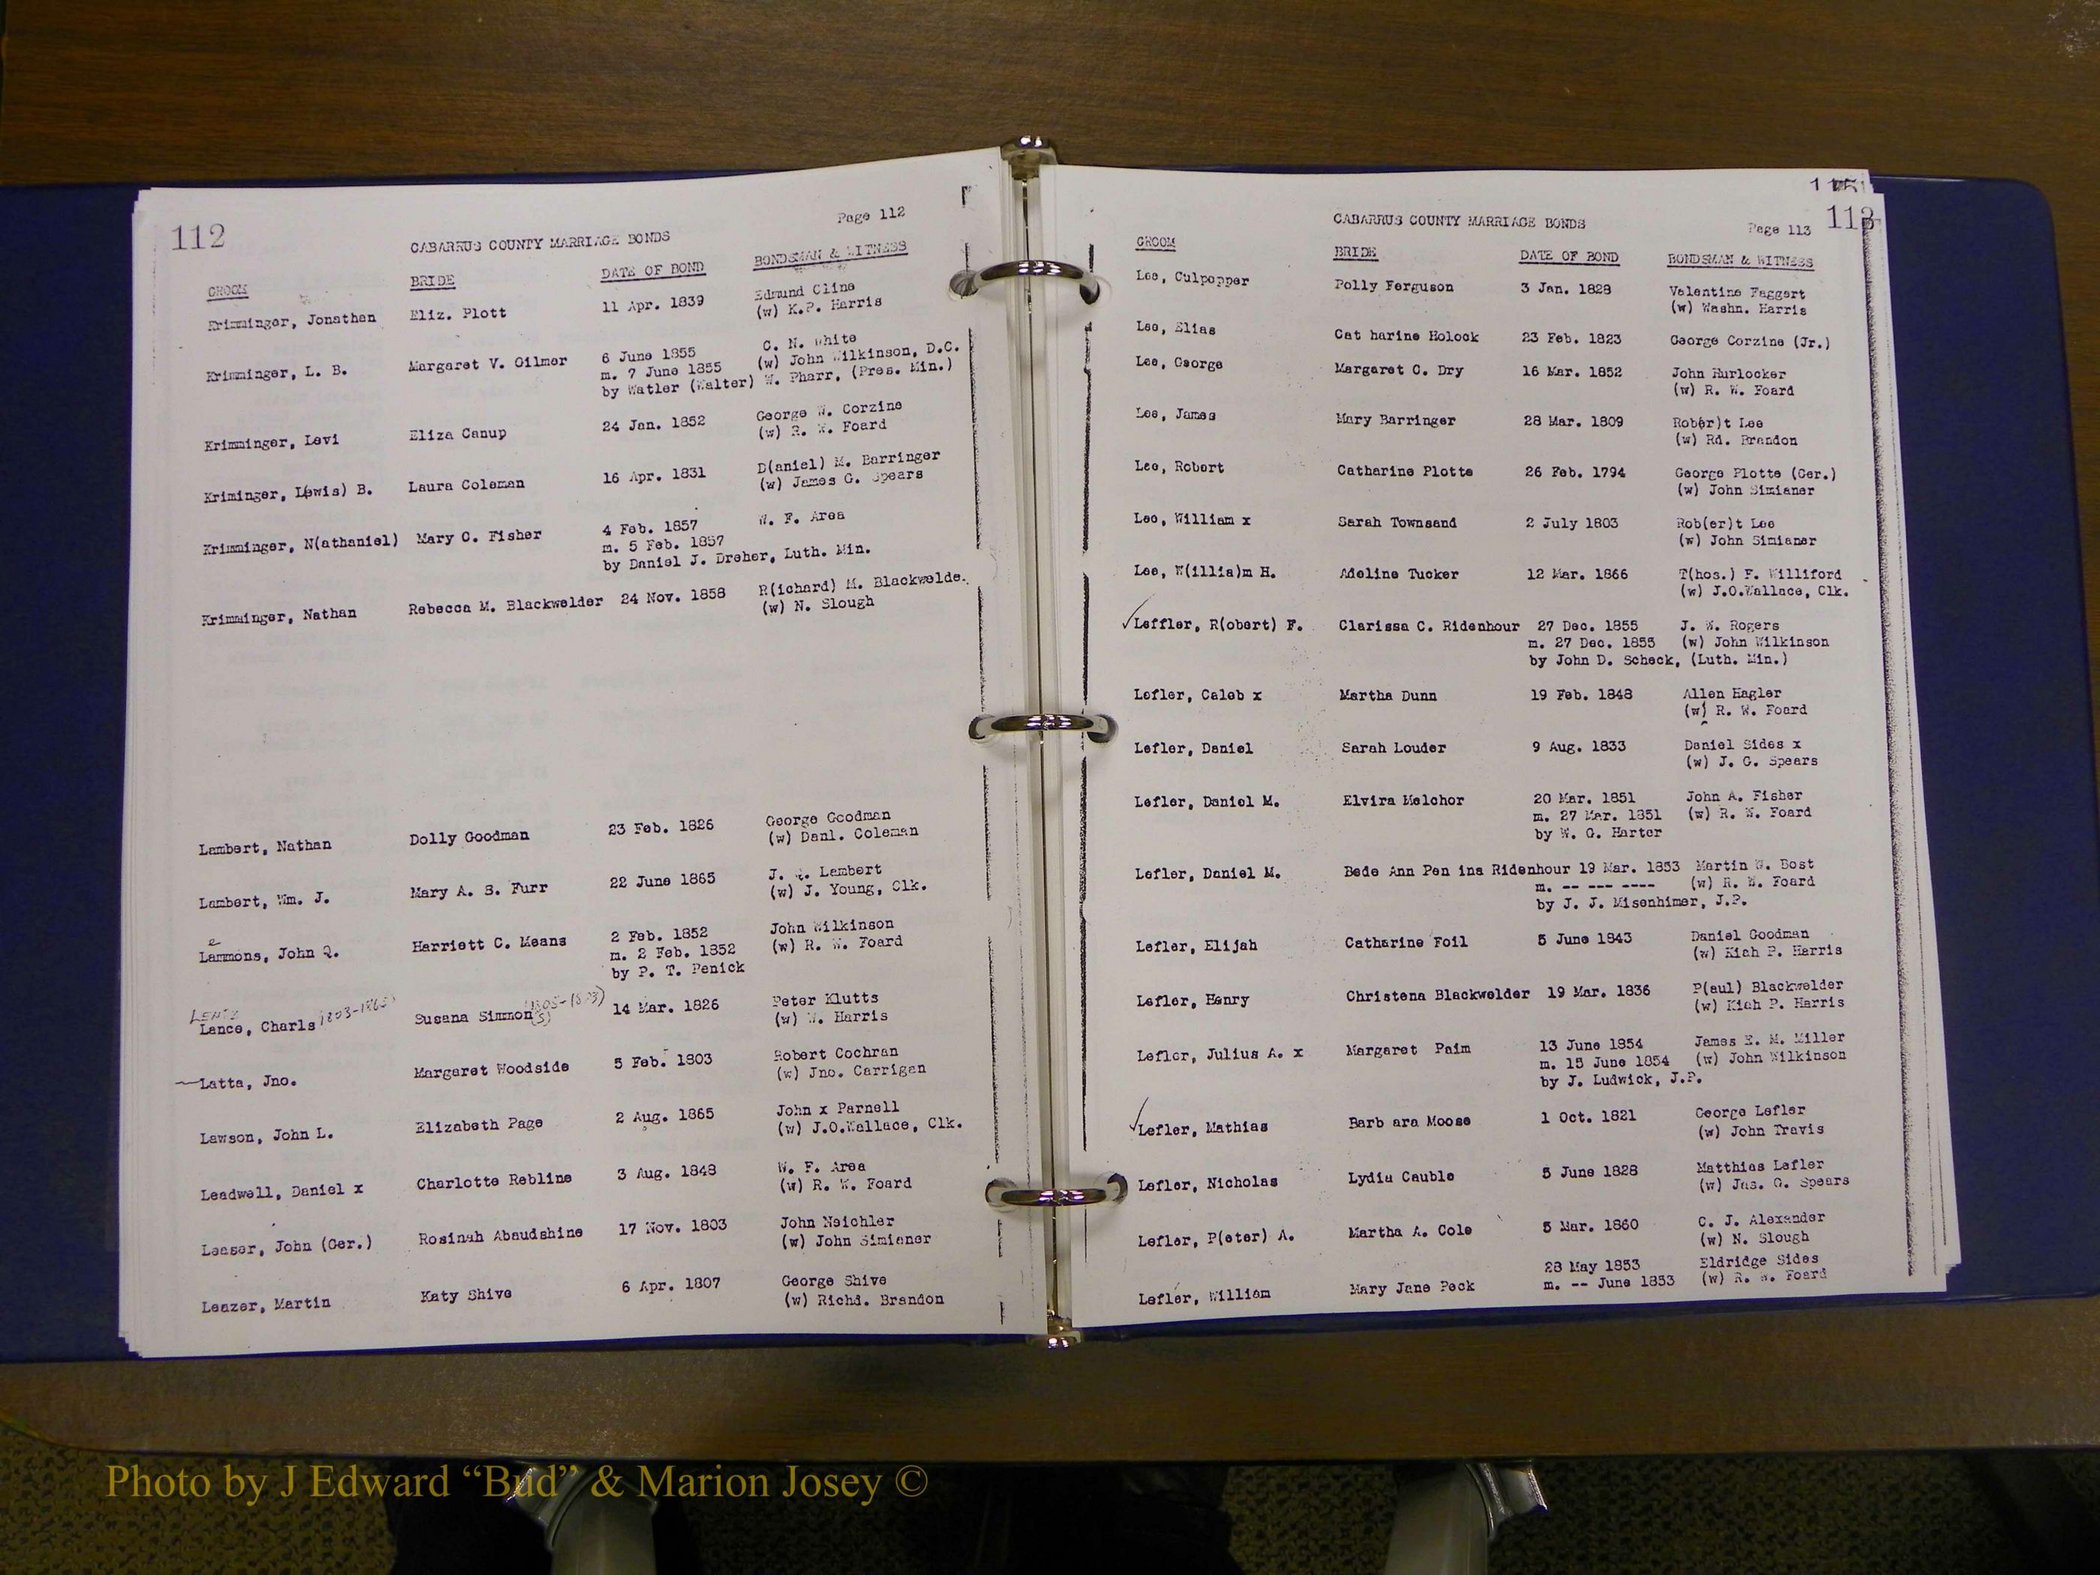 112
Page 112
CABARRUS COUNTY MARRIAGE BONDS
GROOM BRIDE DATE OF BOND BONDSMAN & WITNESS
Krimminger, Jonathan Eliz. Plott 11 Apr. 1839 Edmund Cline
(w) K.P. Harris
C. N. White
Krimminger, L. B. Margaret V. Gilmer 6 June 1855 (w) John Wilkinson, D.C.
m. 7 June 1855
by Watler (Walter) W. Pharr, (Pres. Min.)
Krimminger, Levi Eliza Canup 24 Jan. 1852 George W. Corzine
(w) R. W. Foard
Kriminger, L(ewis) B. Laura Coleman 16 Apr. 1831 D(aniel) M. Barringer
(w) James G. Spears
Krimminger, N(athaniel) Mary C. Fisher 4 Feb. 1857 W. F. Area
m. 5 Feb. 1857
by Daniel J. Dreher, Luth. Min.
Krimminger, Nathan Rebecca M. Blackwelder 24 Nov. 1858 R(ichard) M. Blackwelde
(w) N. Slough
Lambert, Nathan Dolly Goodman 23 Feb. 1826 George Goodman
(w) Danl. Coleman
Lambert, Wm. J. Mary A. S. Furr 22 June 1865 J. Q. Lambert
(w) J. Young, Clk.
e
Lammons, John Q. Harriett C. Means 2 Feb. 1852 John Wilkinson
m. 2 Feb. 1852 (w) R. W. Foard
by P. T. Penick
LENTZ
Lance, Charls 1803-1865 Susana Simmon(s) (1805-1883) 14 Mar. 1826 Peter Klutts
(w) W. Harris
Latta, Jno. Margaret Woodside 5 Feb. 1803 Robert Cochran
(w) Jno. Carrigan
Lawson, John L. Elizabeth Page 2 Aug. 1865 John x Parnell
(w) J.O.Wallace, Clk.
Leadwell, Daniel x Charlotte Rebline 3 Aug. 1848 W. F. Area
(w) R. W. Foard
Leaser, John (Ger.) Rosinah Abaudshine 17 Nov. 1803 John Neichler
(w) John Simianer
Leazer, Martin Katy Shive 6 Apr. 1807 George Shive
(w) Richd. Brandon
113
CABARRUS COUNTY MARRIAGE BONDS
Page 113
GROOM BRIDE DATE OF BOND BONDSMAN & WITNESS
Lee, Culpepper Polly Ferguson 3 Jan. 1828 Valentine Faggart
(w) Washn. Harris
Lee, Elias Cat harine Holock 23 Feb. 1823 George Corzine (Jr.)
Lee, George Margaret C. Dry 16 Mar. 1852 John Hurlocker
(w) R. W. Foard
Lee, James Mary Barringer 28 Mar. 1809 Rob(er)t Lee
(w) Rd. Brandon
Lee, Robert Catharine Plotte 26 Feb. 1794 George Plotte (Ger.)
(w) John Simianer
Lee, William x Sarah Townsand 2 July 1803 Rob(er)t Lee
(w) John Simianer
Lee, W(illia)m H. Adeline Tucker 12 Mar. 1866 T(hos.) F. Williford
(w) J.O.Wallace, Clk.
Leffler, R(obert) F. Clarissa C. Ridenhour 27 Dec. 1855 J. W. Rogers
m. 27 Dec. 1855 (w) John Wilkinson
by John D. Scheck, (Luth. Min.)
Lefler, Caleb x Martha Dunn 19 Feb. 1848 Allen Hagler
(w) R. W. Foard
Lefler, Daniel Sarah Louder 9 Aug. 1833 Daniel Sides x
(w) J. G. Spears
Lefler, Daniel M. Elvira Melchor 20 Mar. 1851 John A. Fisher
m. 27 Mar. 1851 (w) R. W. Foard
by W. G. Harter
Lefler, Daniel M. Bede Ann Pen ina Ridenhour 19 Mar. 1853 Martin W. Bost
m. -- --- ---- (w) R. W. Foard
by J. J. Misenhimer, J.P.
Lefler, Elijah Catharine Foil 5 June 1843 Daniel Goodman
(w) Kiah P. Harris
Lefler, Henry Christena Blackwelder 19 Mar. 1836 P(aul) Blackwelder
(w) Kiah P. Harris
Lefler, Julius A. x Margaret Paim 13 June 1854 James E. M. Miller
m. 15 June 1854 (w) John Wilkinson
by J. Ludwick, J.P.
Lefler, Mathias Barb ara Moose 1 Oct. 1821 George Lefler
(w) John Travis
Lefler, Nicholas Lydia Cauble 5 June 1828 Matthias Lefler
(w) Jas. G. Spears
Lefler, P(eter) A. Martha A. Cole 5 Mar. 1860 C. J. Alexander
(w) N. Slough
28 May 1853 Eldridge Sides
Lefler, William Mary Jane Peck m. -- June 1853 (w) R. W. Foard
Photo by J Edward “Bud” & Marion Josey ©